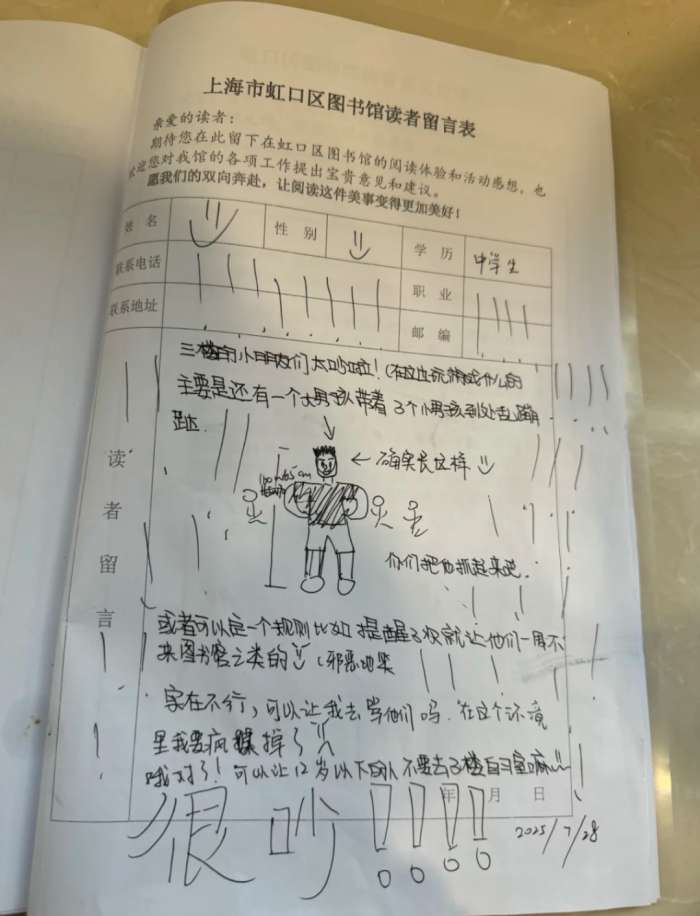 上海市虹口区图书馆读者留言表
亲爱的读者：
期待您在此留下在虹口区图书馆的阅读体验和活动感想，也
欢迎您对我馆的各项工作提出宝贵意见和建议。
愿我们的双向奔赴，让阅读这件美事变得更加美好！
姓 名 性 别 学 历 中学生
联系电话 职 业
联系地址 邮 编
三楼的小朋友们太吵啦！(在这边玩游戏什么的
主要是还有一个大男孩带着3个小男孩到处乱蹦
跶.
← 确实长这样
你们把他抓起来吧.
读者留言
或者可以定一个规则比如提醒3次就让他们一周不
来图书馆之类的 (邪恶地笑
实在不行，可以让我去骂他们吗.在这个环境
里我要疯掉了
哦对了！可以让12岁以下的人不要去3楼自习室嘛
年 月 日
很吵！！！！
2025/7/28